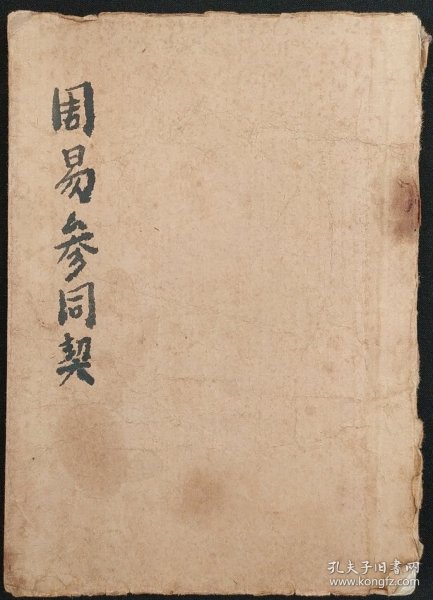 周易参同契
孔夫子旧书网
www.kongfz.com